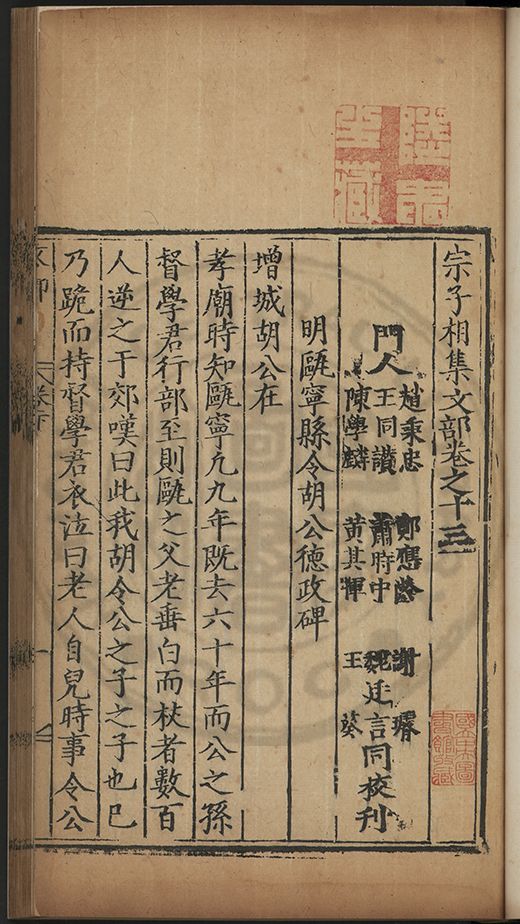 宗子相集文部卷之十三
門人
趙秉忠 鄭應齡 謝
王同讚 蕭時中 魏廷言同校刊
陳學麟 黃其暉 王葵
明甌寧縣令胡公德政碑
增城胡公在
孝廟時知甌寧凡九年既去六十年而公之孫
督學君行部至則甌之父老垂白而杖者數百
人逆之于郊嘆曰此我胡令公之子之子也已
乃跪而持督學君衣泣曰老人自兒時事令公